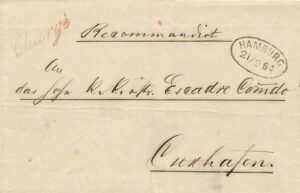 Chargé
Recommandirt
HAMBURG
21/9 64
An
das hohe K. K. östr. Escadre Comdo
Cuxhafen.